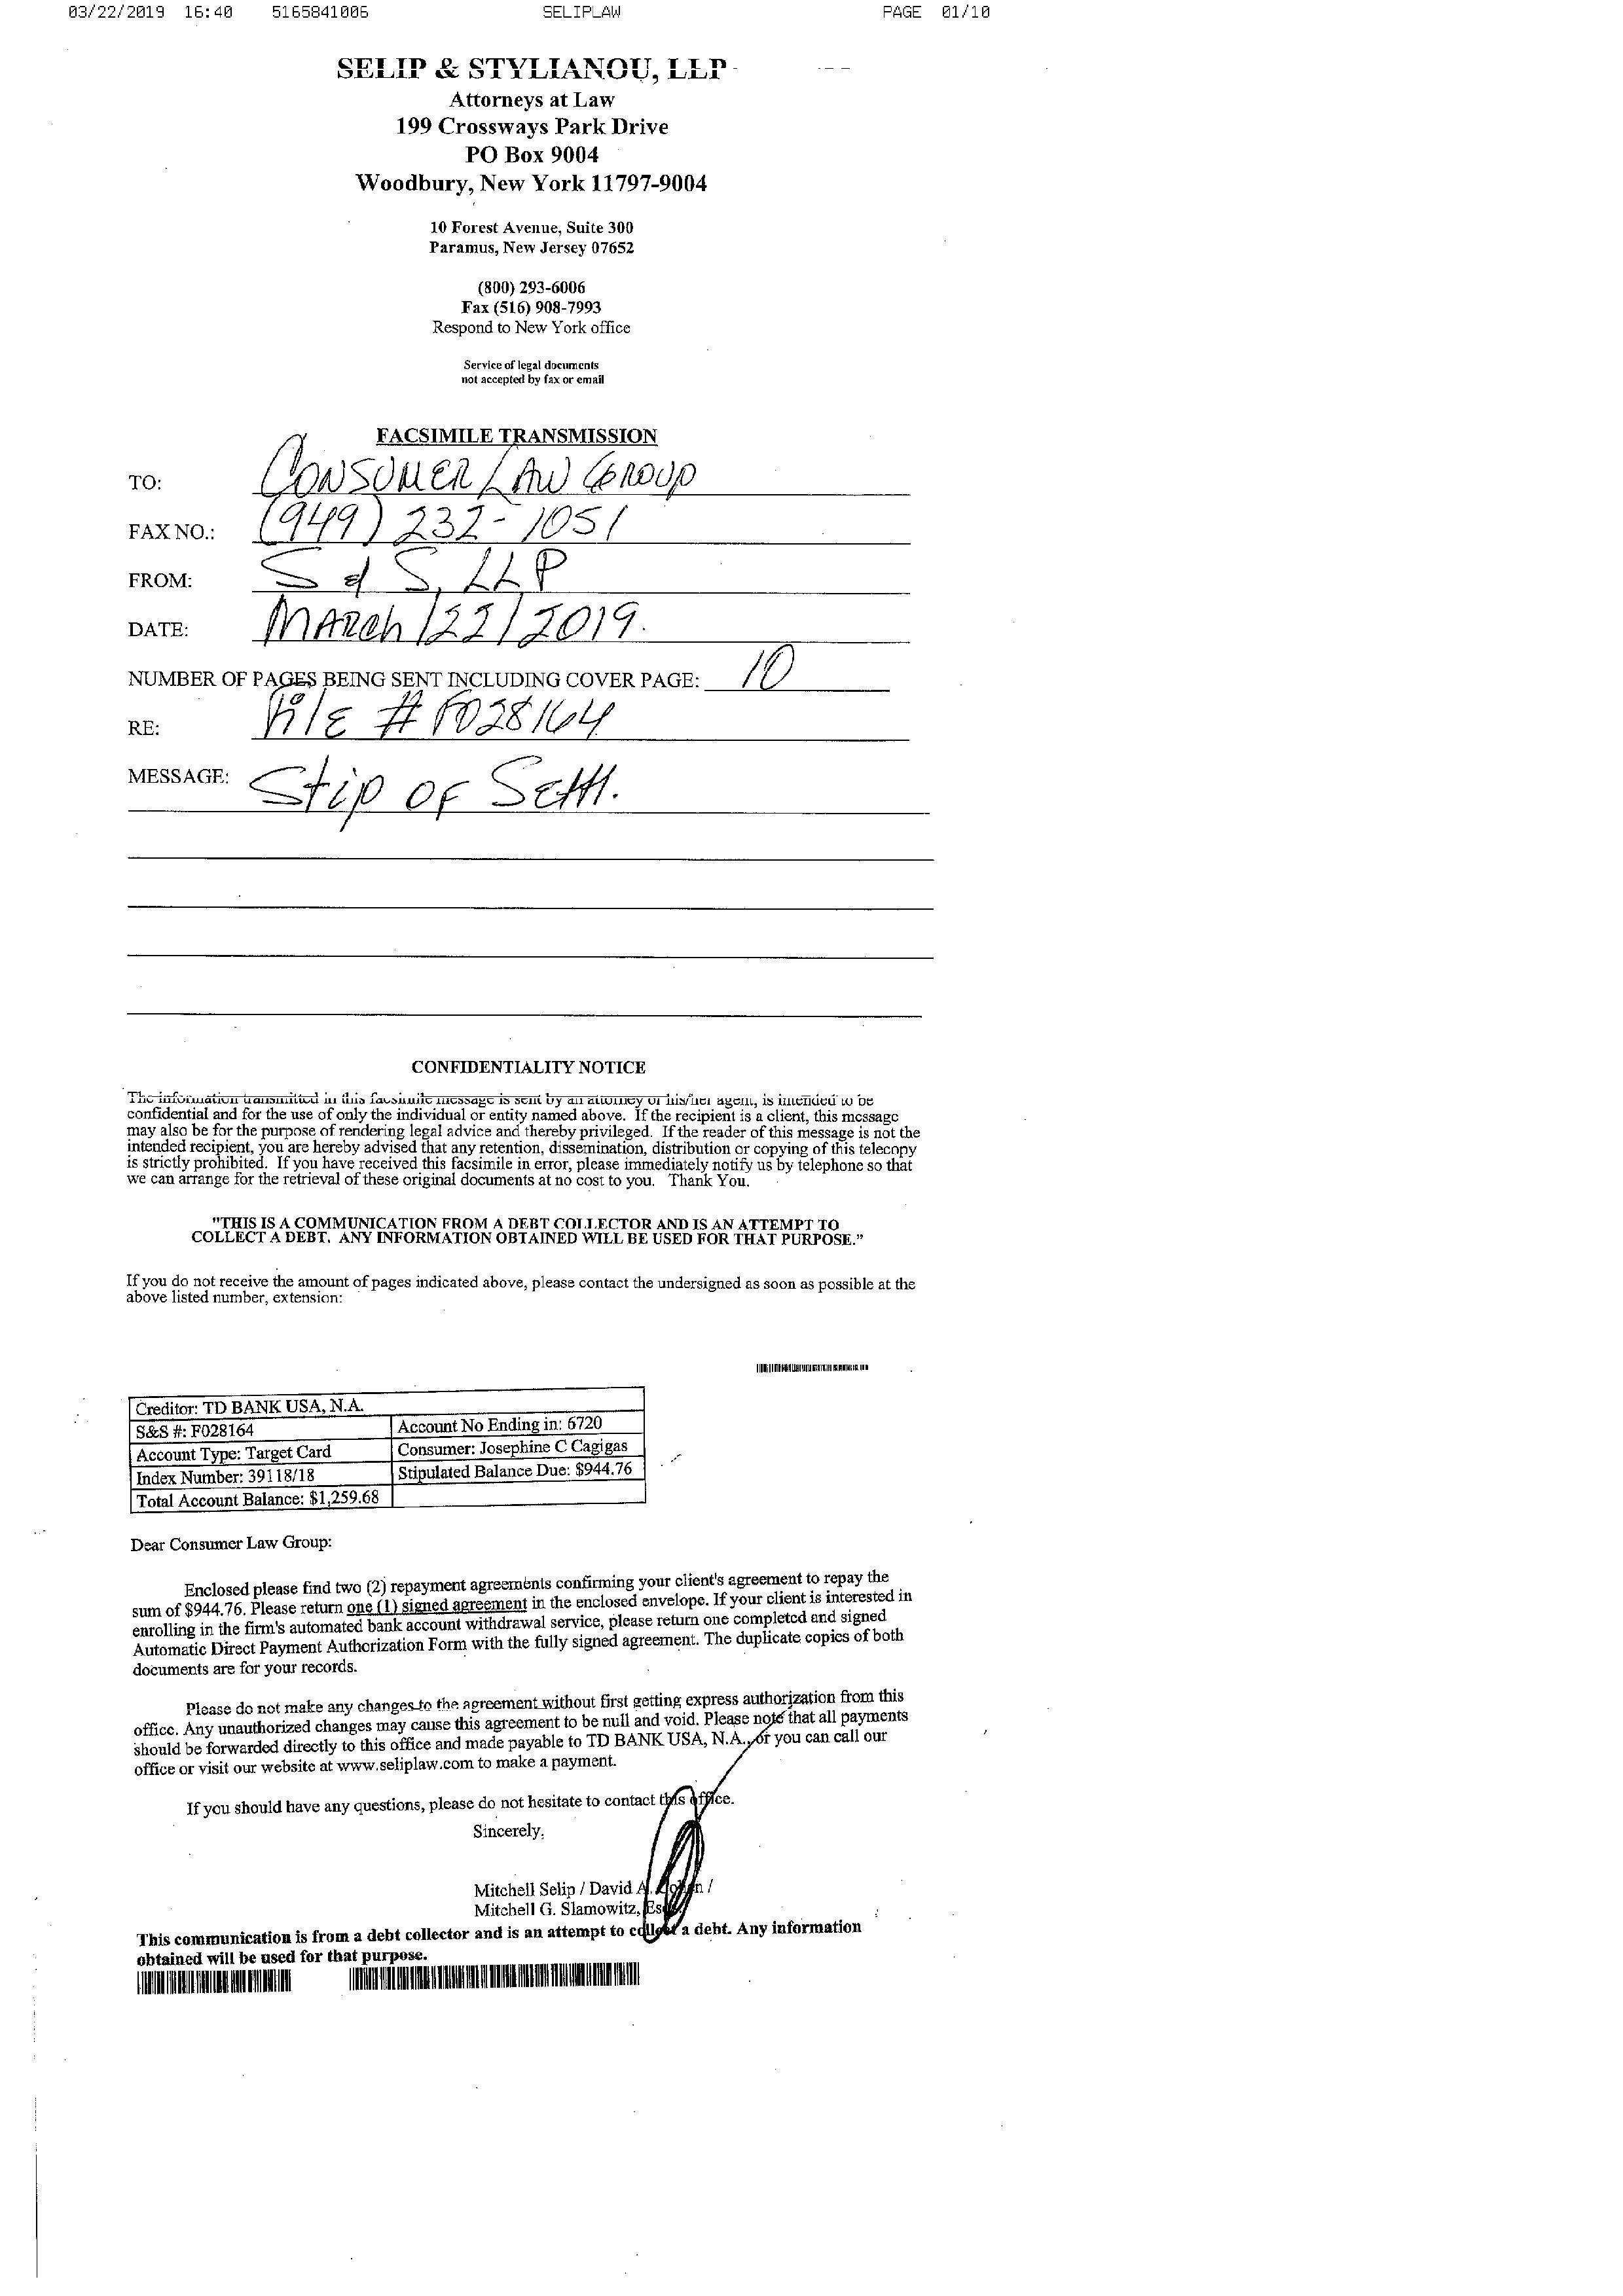 03/22/2019 16:40 5165841006 SELIPLAW PAGE 01/10
SELIP & STYLIANOU, LLP
Attorneys at Law
199 Crossways Park Drive
PO Box 9004
Woodbury, New York 11797-9004
10 Forest Avenue, Suite 300
Paramus, New Jersey 07652
(800) 293-6006
Fax (516) 908-7993
Respond to New York office
Service of legal documents
not accepted by fax or email
FACSIMILE TRANSMISSION
TO: Consumer Law Group
FAX NO.: (949) 232-1051
FROM: S & S, LLP
DATE: March/22/2019.
NUMBER OF PAGES BEING SENT INCLUDING COVER PAGE: 10
RE: File # F028164
MESSAGE: Stip of Settl.
CONFIDENTIALITY NOTICE
The information transmitted in this facsimile message is sent by an attorney or his/her agent, is intended to be
confidential and for the use of only the individual or entity named above. If the recipient is a client, this message
may also be for the purpose of rendering legal advice and thereby privileged. If the reader of this message is not the
intended recipient, you are hereby advised that any retention, dissemination, distribution or copying of this telecopy
is strictly prohibited. If you have received this facsimile in error, please immediately notify us by telephone so that
we can arrange for the retrieval of these original documents at no cost to you. Thank You.
"THIS IS A COMMUNICATION FROM A DEBT COLLECTOR AND IS AN ATTEMPT TO
COLLECT A DEBT. ANY INFORMATION OBTAINED WILL BE USED FOR THAT PURPOSE."
If you do not receive the amount of pages indicated above, please contact the undersigned as soon as possible at the
above listed number, extension:
Creditor: TD BANK USA, N.A.
S&S #: F028164 Account No Ending in: 6720
Account Type: Target Card Consumer: Josephine C Cagigas
Index Number: 39118/18 Stipulated Balance Due: $944.76
Total Account Balance: $1,259.68
Dear Consumer Law Group:
Enclosed please find two (2) repayment agreements confirming your client's agreement to repay the
sum of $944.76. Please return one (1) signed agreement in the enclosed envelope. If your client is interested in
enrolling in the firm's automated bank account withdrawal service, please return one completed and signed
Automatic Direct Payment Authorization Form with the fully signed agreement. The duplicate copies of both
documents are for your records.
Please do not make any changes to the agreement without first getting express authorization from this
office. Any unauthorized changes may cause this agreement to be null and void. Please note that all payments
should be forwarded directly to this office and made payable to TD BANK USA, N.A., or you can call our
office or visit our website at www.seliplaw.com to make a payment.
If you should have any questions, please do not hesitate to contact this office.
Sincerely,
Mitchell Selip / David A. /
Mitchell G. Slamowitz, Esq.
This communication is from a debt collector and is an attempt to collect a debt. Any information
obtained will be used for that purpose.